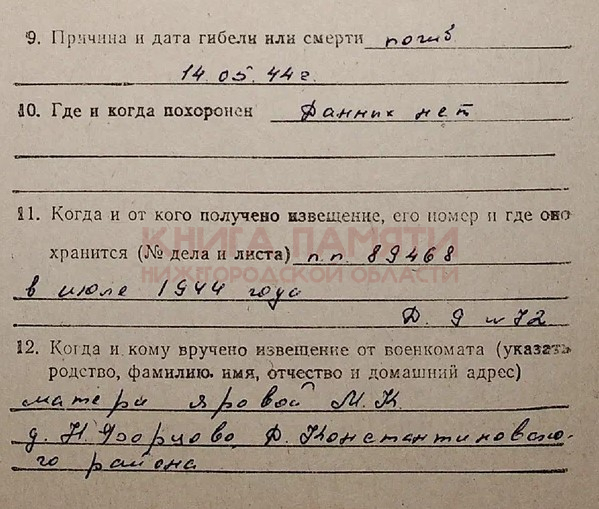 9. Причина и дата гибели или смерти погиб
14.05.44г.
10. Где и когда похоронен Данних нет
11. Когда и от кого получено извещение, его номер и где оно
хранится (№ дела и листа) п.п. 89468
КНИГА ПАМЯТИ
НИЖЕГОРОДСКОЙ ОБЛАСТИ
в июле 1944 года
Д. 9 л 72
12. Когда и кому вручено извещение от военкомата (указать
родство, фамилию, имя, отчество и домашний адрес)
матери Яровой М.К
д. Н. Д. Константиновско-
го района